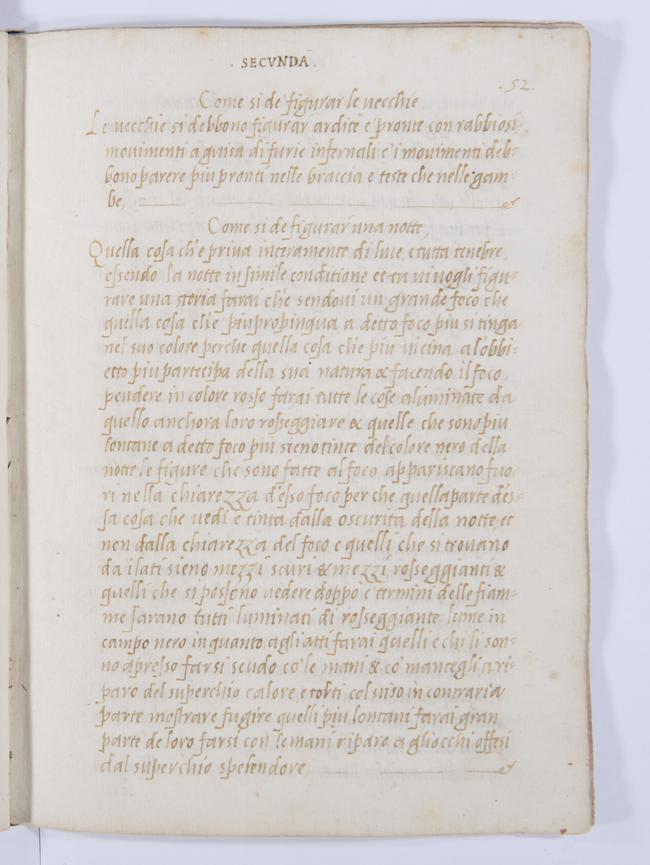 . SECVNDA .
. 52 .
Come si de figurar le uecchie,
Le uecchie si debbono figurar ardite e pronte con rabbiosi
mouimenti a guisa di furie infernali e i mouimenti deb-
bono parere piu pronti nelle braccia e teste che nelle gam-
be,
Come si de figurar una notte,
Quella cosa ch'e priua interamente di luce, e tutta tenebre,
essendo la notte in simile conditione et tu ui uogli figu-
rare una storia farai che sendoui un grande foco che
quella cosa ch'e piu propinqua a detto foco piu si tinga
nel suo colore perche quella cosa ch'e piu uicina a l'obbi-
etto piu partecipa della sua natura & facendo il foco
pendere in colore rosso farai tutte le cose aluminate da
quello anchora loro rosseggiare & quelle che sono piu
lontane a detto foco piu sieno tinte del colore nero della
notte le figure che sono fatte al foco appariscano fuo-
ri nella chiarezza d'esso foco per che quella parte d'es-
sa cosa che uedi e tinta dalla oscurita della notte, et
non dalla chiarezza del foco e quelli che si trouano
da i lati sieno mezzi scuri & mezzi rosseggianti &
quelli che si possono uedere doppo e termini delle fiam-
me sarano tutti luminati di rosseggiante lume in
campo nero in quanto agli atti farai quelli e chi li son-
no apresso farsi scudo co le mani & co mantegli a ri-
paro del superchio calore, e torti col uiso in contraria
parte mostrare fugire quelli piu lontani farai gran
parte de loro farsi con le mani riparo a gliocchi offesi
dal superchio spelendore,